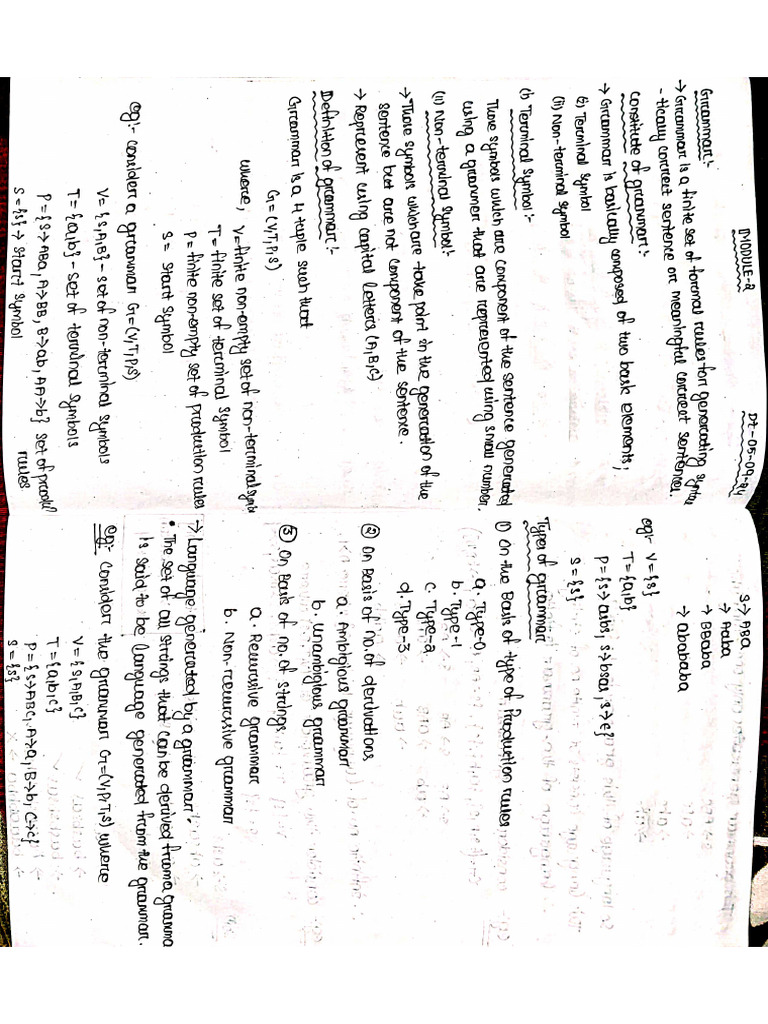 MODULE-2
Dt-05-09-24
Grammar:-
→ Grammar is a finite set of formal rules for generating syntac
-tically correct sentence or meaningful correct sentences.
constitute of grammar:-
→ Grammar is basically composed of two basic elements,
(i) Terminal symbol
(ii) Non-terminal symbol
(i) Terminal symbol:-
Those symbols which are component of the sentence generated
using a grammer that are represented using small number.
(ii) Non-terminal symbol:-
→ Those symbols which are take point in the generation of the
sentence but are not component of the sentence.
→ Represent using capital letters (A,B,C)
Definition of grammar:-
Grammar is a 4 tuple such that
G=(V,T,P,S)
where, V=finite non-empty set of non-terminal symb
T=finite set of terminal symbol
P=finite non-empty set of production rules
S= Start symbol
eg:- consider a grammar G=(V,T,P,S)
V={S,A,B}-set of non-terminal symbols
T={a,b}-set of terminal symbols
P={S→ABa, A→BB, B→ab, AA→b} set of prodn
rules
S={S}→ start symbol
S→ABa
→Aaba
→BBaba
→abababa
eg:- V={S}
T={a,b}
P={S→asbs, S→bsas, S→ε}
S={S}
Types of grammar
① On the Basis of type of Production rules
a. Type-0
b. Type-1
c. Type-2
d. Type-3
② On Basis of no. of derivations
a. Ambigious grammar
b. Unambigious grammar
③ On Basis of no. of strings
a. Recursive grammar
b. Non-recursive grammar
→ Language generated by a grammar:-
• The set of all strings that can be derived from a gramma
is said to be language generated from the grammar.
eg:- Consider the grammar G=(V,P,T,S) where
V={S,A,B,C}
T={a,b,c}
P={S→ABC, A→a, B→b, C→c}
S={S}